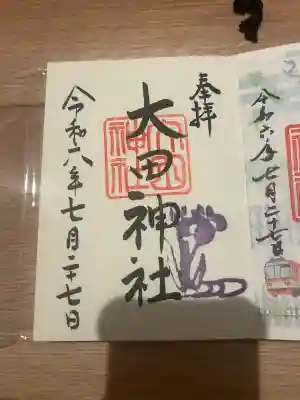 令和六年七月二十七日
奉拝
大田神社
神社
令和六年七月二十七日